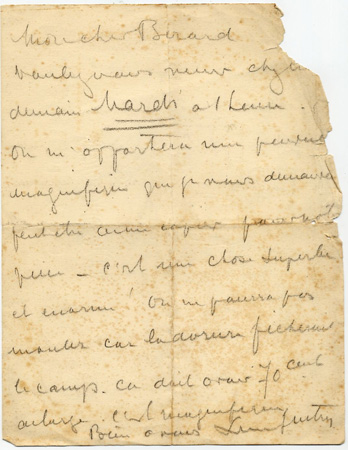 Mon cher Bérard
voulez vous venir chez
demain Mardi a 1 heure.
On m'apportera une pendule
magnifique que je vous demanderai
peut être
peu - c'est une chose superbe
et On ne pourra pas
mouler car la dorure ficherait
le camp. ca doit avoir 70 cent
de large. c'est magnifique
Bien a vous